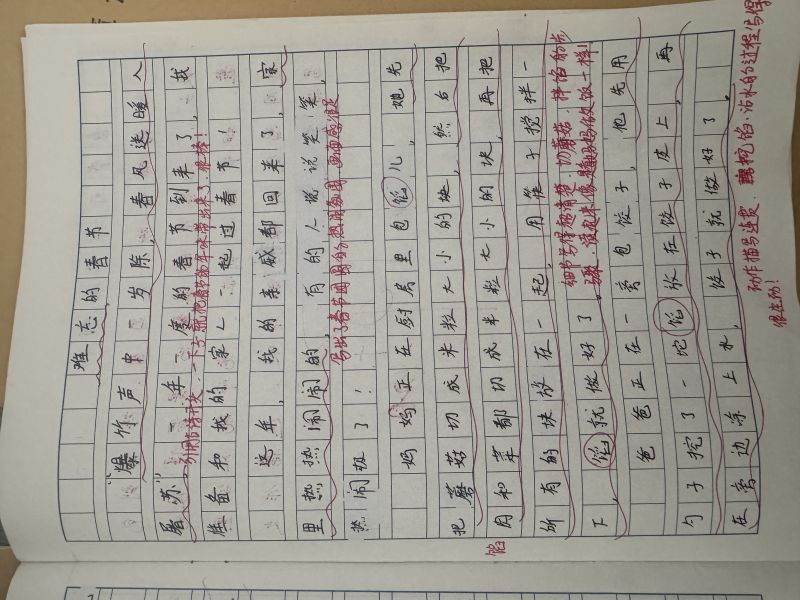 难忘的春节
"爆竹声中一岁除,春风送暖入
屠苏"一年一度的春节到来了,我
引用古诗开头,一下子就把春节的年味带出来了,很棒!
准备和我的家人一起过春节!
这年,我的亲戚都回来了,家
里热热闹闹的,有的人说说笑笑,
写出了春节团圆的热闹氛围,画面感很足
热闹极了!
妈妈正在厨房里包馅儿,她先
把蘑菇切成米粒大小的块,然后把
肉和菜都切成米粒大小的块,再把
馅
所有的块放在一起,用筷子搅拌一
细节写得超清楚,切蘑菇、拌馅的步
下,馅就做好了。
骤,读起来像是跟妈妈做饭一样!
爸爸正在旁包饺子,他先用
勺子挖了一坨馅放在饺子皮上,再
在旁边涂上水,饺子就做好了。
动作描写连贯,挖馅、沾水的过程写得
很生动!